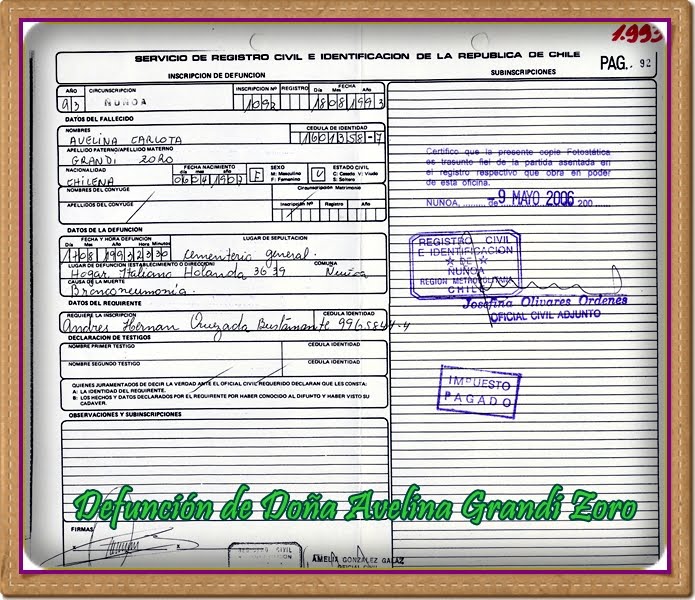 1.993
SERVICIO DE REGISTRO CIVIL E IDENTIFICACION DE LA REPUBLICA DE CHILE
INSCRIPCION DE DEFUNCION
SUBINSCRIPCIONES
PAG. 92
AÑO CIRCUNSCRIPCION INSCRIPCION Nº REGISTRO Día Mes FECHA Año
93 ÑUÑOA 1092 18 08 1993
DATOS DEL FALLECIDO
NOMBRES CEDULA DE IDENTIDAD
AVELINA CARLOTA 1601358-7
APELLIDO PATERNO/APELLIDO MATERNO
GRANDI ZORO
NACIONALIDAD FECHA NACIMIENTO Día Mes Año SEXO M: Masculino F: Femenino ESTADO CIVIL C: Casado V: Viudo S: Soltero
CHILENA 1907 F V
NOMBRES DEL CONYUGE Circunscripción Matrimonio
APELLIDOS DEL CONYUGE Inscripción Nº Registro Año
DATOS DE LA DEFUNCION
FECHA Y HORA DEFUNCION LUGAR DE SEPULTACION
Día Mes Año Hora Minutos
17 08 1993 23 30 Cementerio general.
LUGAR DE DEFUNCION (ESTABLECIMIENTO O DIRECCION) COMUNA
Hogar Italiano Holanda 3639 Ñuñoa
CAUSA DE LA MUERTE
Bronconeumonia.
DATOS DEL REQUIRENTE
REQUIERE LA INSCRIPCION CEDULA IDENTIDAD
Andres Hernan Quezada Bustamante
DECLARACION DE TESTIGOS
NOMBRE PRIMER TESTIGO CEDULA IDENTIDAD
NOMBRE SEGUNDO TESTIGO CEDULA IDENTIDAD
QUIENES JURAMENTADOS DE DECIR LA VERDAD ANTE EL OFICIAL CIVIL REQUERIDO DECLARAN QUE LES CONSTA:
A: LA IDENTIDAD DEL REQUIRENTE.
B: LOS HECHOS Y DATOS DECLARADOS POR EL REQUIRENTE POR HABER CONOCIDO AL DIFUNTO Y HABER VISTO SU
CADAVER.
OBSERVACIONES Y SUBINSCRIPCIONES
Certifico que la presente copia Fotostática
es trasunto fiel de la partida asentada en
el registro respectivo que obra en poder
de esta oficina.
ÑUÑOA, ........ de -9 MAYO 2006 200 ......
REGISTRO CIVIL
E IDENTIFICACION
DE
ÑUÑOA
REGION METROPOLITANA
CHILE
Josefina Olivares Ordenes
OFICIAL CIVIL ADJUNTO
IMPUESTO
PAGADO
Defunción de Doña Avelina Grandi Zoro
FIRMAS
REGISTRO CIVIL
AMELIA GONZALEZ GALAZ
OFICIAL CIVIL